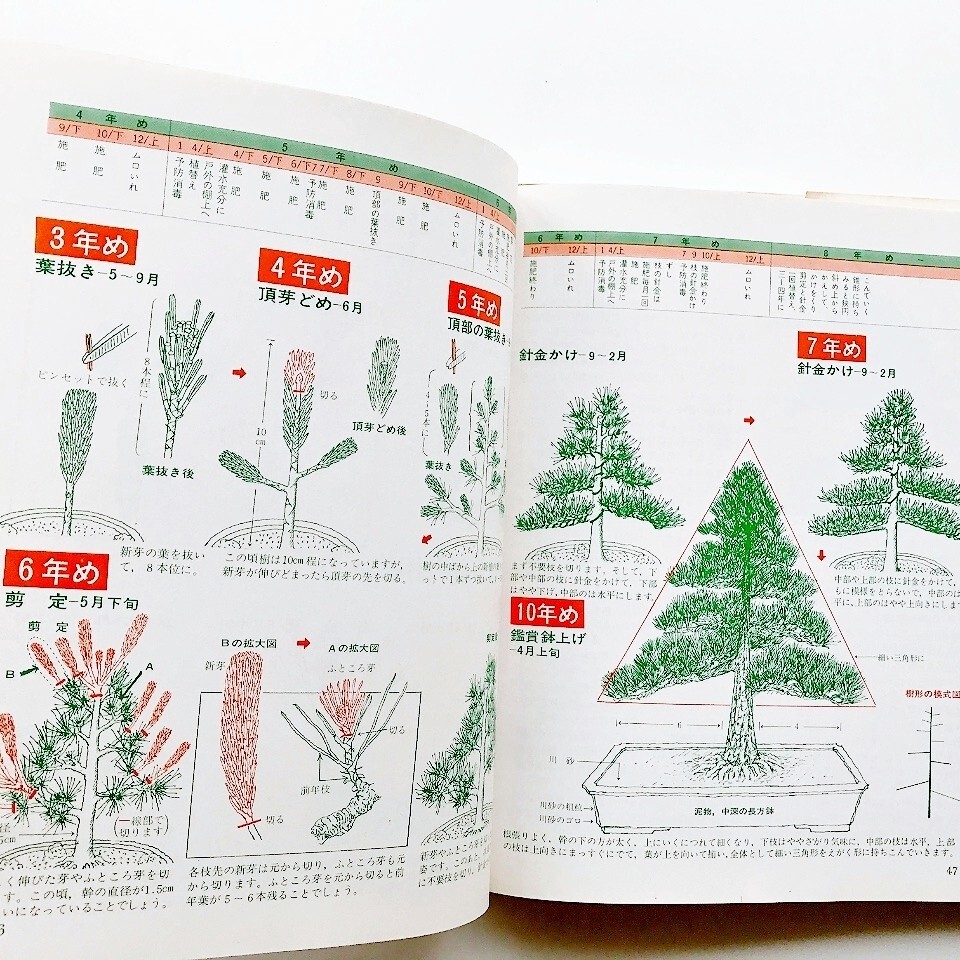 4年め
9/下 10/下 12/上
施肥
施肥
ムロいれ
5年め
1 4/上 4/下 5/下 6/下 7 7/下 8/下 9 9/下 10/下 12/上
予防消毒
植替え
戸外の棚上へ
灌水充分に
施肥
施肥
施肥
予防消毒
施肥
施肥
頂部の葉抜き
施肥
施肥
ムロいれ
1 4/上
予防消毒
3年め
葉抜き-5~9月
ピンセットで抜く
8本程に
葉抜き後
新芽の葉を抜い
て、8本位に。
4年め
頂芽どめ-6月
切る
10cm
頂芽どめ後
この頃樹は10cm程になっていますが、
新芽が伸びどまったら頂芽の先を切る。
5年め
頂部の葉抜き
4~5本に
葉抜き
樹の中ばから上の新
ットで1本ずつ抜い
6年め
剪定-5月下旬
剪定
B
A
線部で
切ります
く伸びた芽やふところ芽を切
す。この頃、幹の直径が1.5cm
いになっていることでしょう。
Bの拡大図
Aの拡大図
新芽
ふところ芽
切る
前年枝
切る
各枝先の新芽は元から切り、ふところ芽も元
から切ります。ふところ芽を元から切ると前
年葉が5~6本残ることでしょう。
新芽や
に不要枝を切り、
6年め
10/下 12/上
施肥終わり
ムロいれ
7年め
1 4/上 7 9 10/上 12/上
予防消毒
戸外の棚上へ
灌水充分に
施肥
施肥毎月一回
枝の針金は
ずし
予防消毒
枝の針金かけ
施肥終わり
ムロいれ
8年め~
三~四年に
一回植替え、
剪定と針金
かけをくり
かえして
斜め上から
みると楕円
錐形に持ち
こんでいく
針金かけ-9~2月
まず不要枝を切ります。そして、下
部や中部の枝に針金をかけて、下部
はやや下げ、中部のは水平にします。
7年め
針金かけ-9~2月
中部や上部の枝に針金をかけて、
もに模様をとらないで、中部のは
平に、上部のはやや上向きにします
10年め
鑑賞鉢上げ
-4月上旬
細い三角形に
樹形の模式図
6
4
川砂
川砂の粗粒
川砂のゴロ
泥物、中深の長方鉢
根張りよく、幹の下の方が太く、上にいくにつれて細くなり、下枝はややさがり気味に、中部の枝は水平、上部
の枝は上向きにまっすぐにでて、葉が上を向いて細い、全体として細い三角形をえがく形に持ちこんでいきます。
47